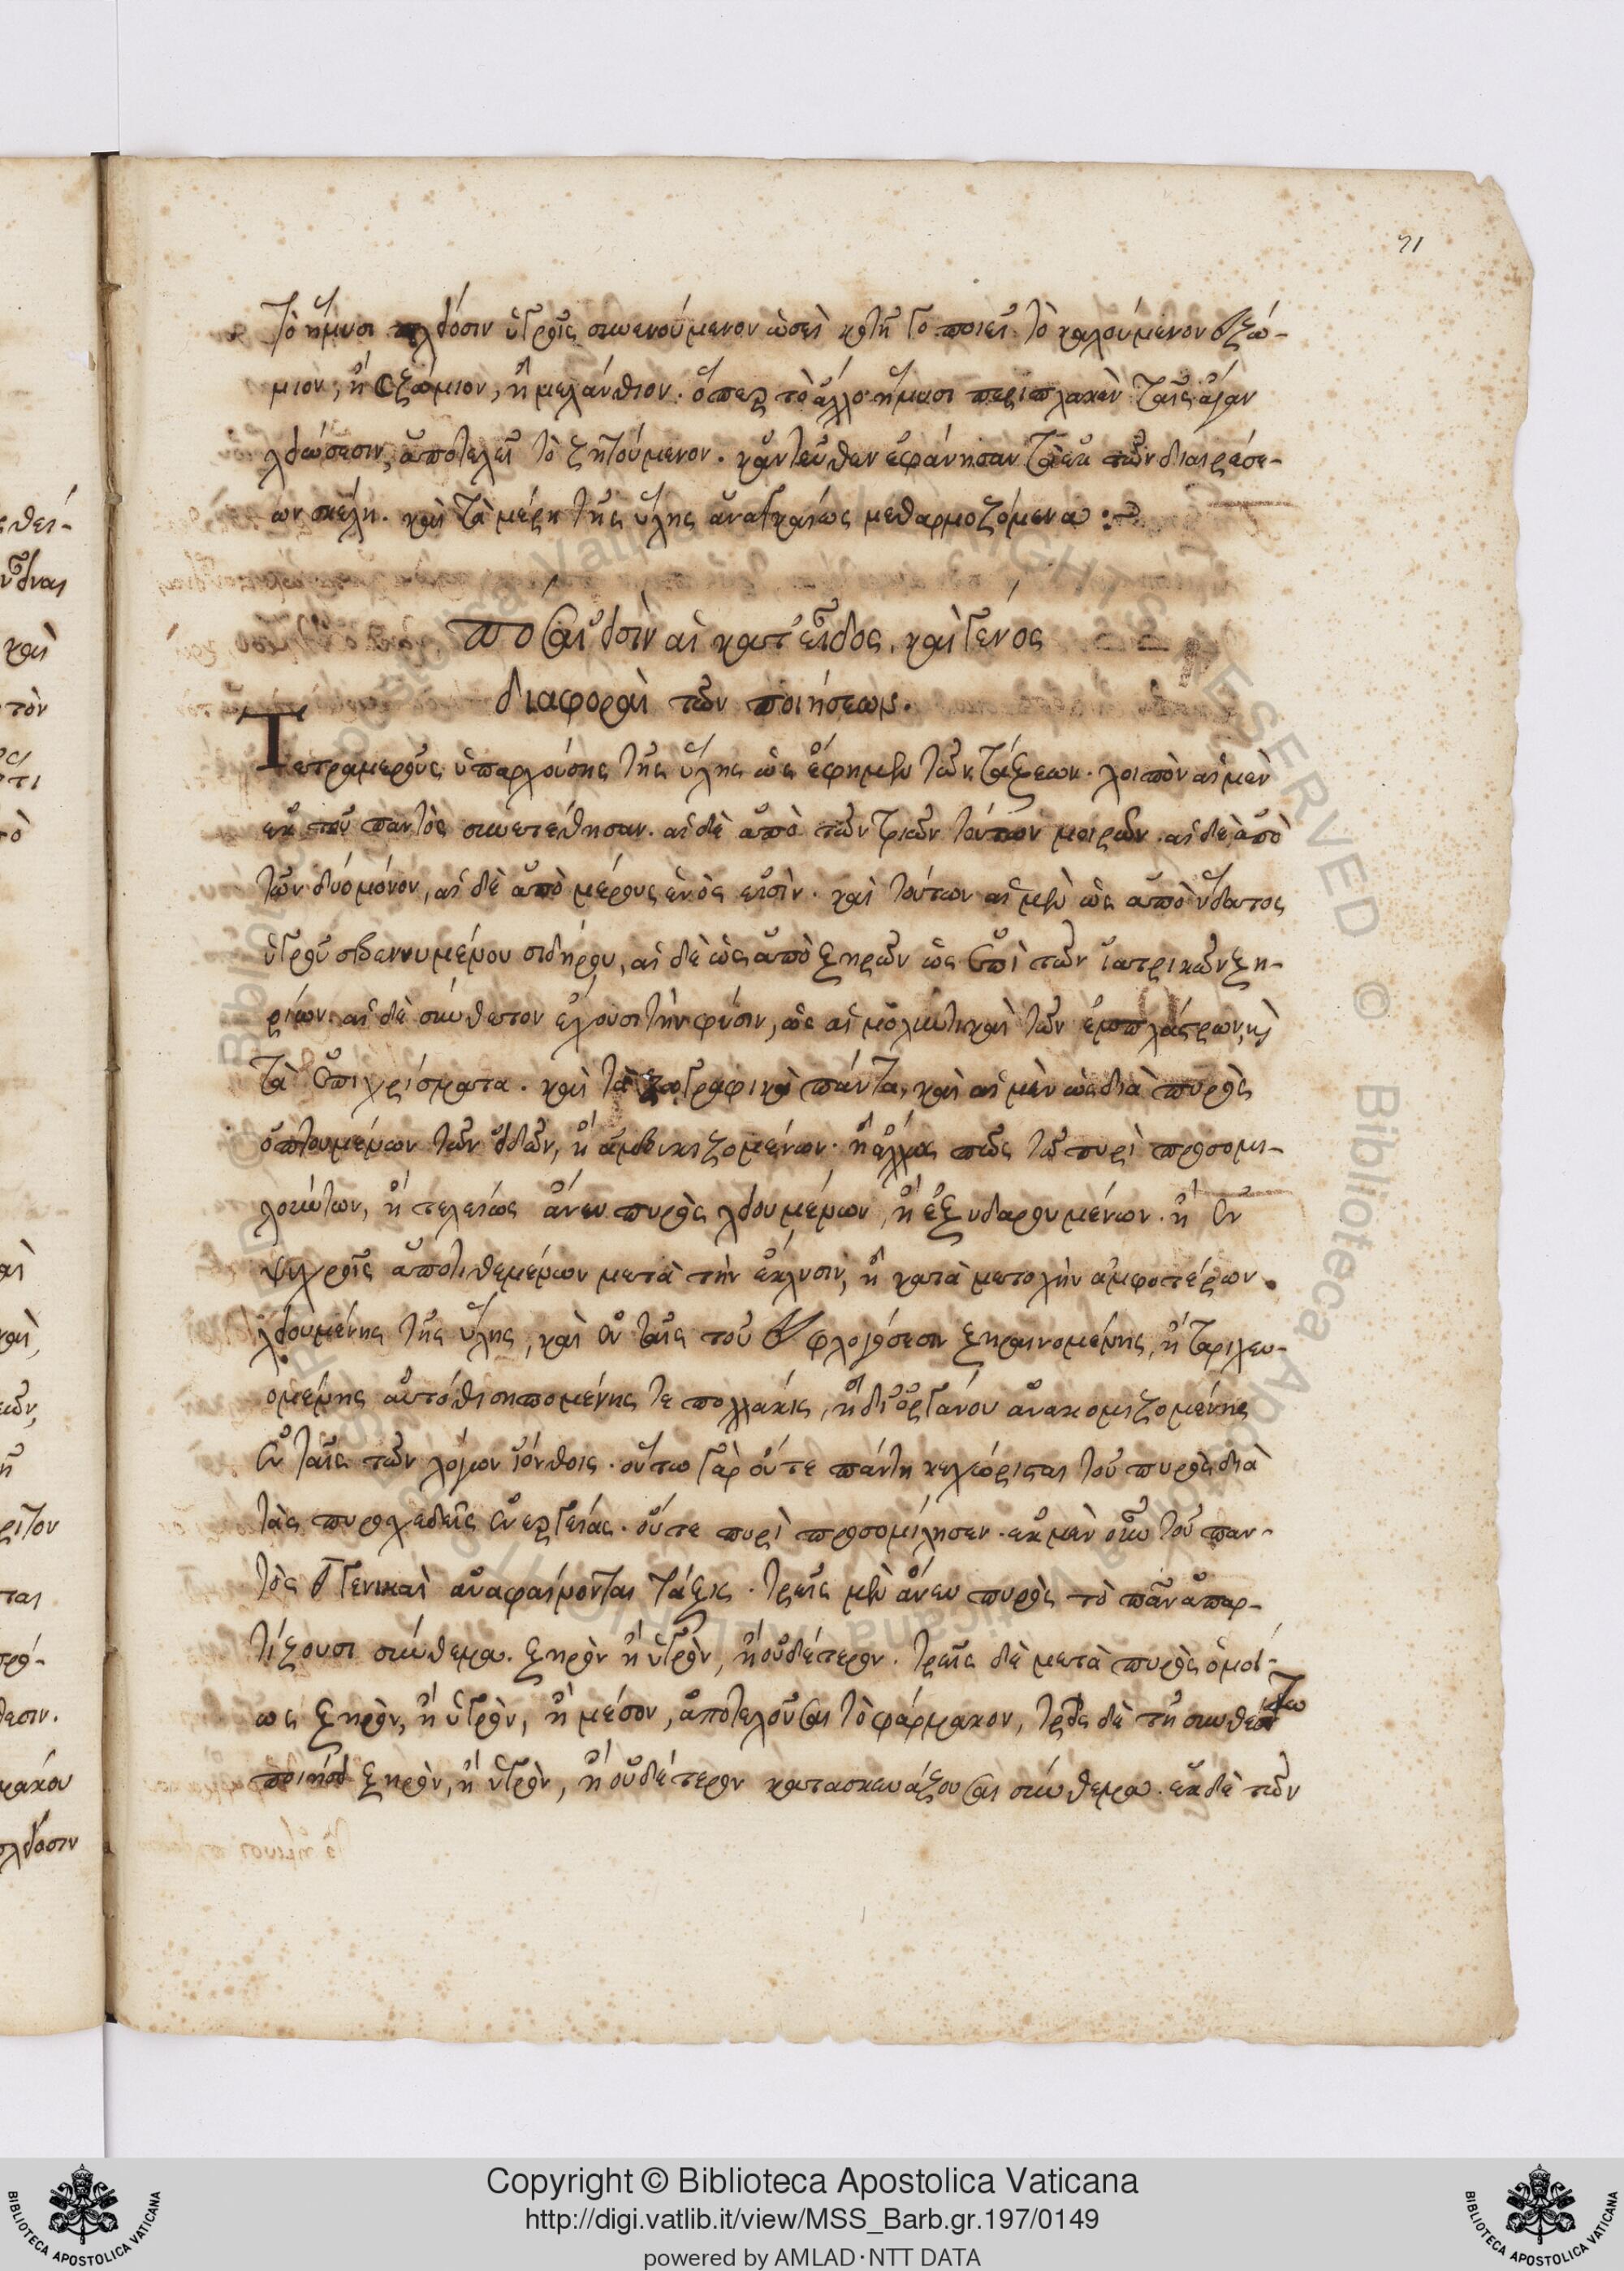 71
Τὸ ἥμυσι λείοσιν ὑγροῖς συνενούμενον ὡσεὶ τὸ ποιεῖ τὸ καλούμενον ὀξώ-
μιον, ἢ ὀξώμιον, ἢ μελάνθιον. ὅπερ τὸ ἄλλο ἥμυσι περιπλακὲν ταῖς ἄγαν
λειώσεσιν, ἀποτελεῖ τὸ ζητούμενον. κἀντεῦθεν ἐφάνησαν τὰ ἐκ τῶν διαιρέσε-
ων σκέλη. καὶ τὰ μέρη τῆς ὕλης ἀναγκαίως μεθαρμοζόμενα :~
Πόσαι εἰσὶν αἱ κατ' εἶδος, καὶ γένος
διαφοραὶ τῶν ποιήσεων.
Τετραμεροῦς ὑπαρχούσης τῆς ὕλης ὡς ἔφημεν τῶν τάξεων. λοιπὸν αἱ μὲν
ἐκ τοῦ παντὸς συνετέθησαν. αἱ δὲ ἀπὸ τῶν τριῶν τούτων μοιρῶν. αἱ δὲ ἀπὸ
τῶν δύο μόνον, αἱ δὲ ἀπὸ μέρους ἑνὸς εἰσὶν. καὶ τούτων αἱ μὲν ὡς ἀπὸ ὕδατος
ὑγροῦ σβεννυμένου σιδήρου, αἱ δὲ ὡς ἀπὸ ξηρῶν ὡς ἐπὶ τῶν ἰατρικῶν ξη-
ρίων. αἱ δὲ σύνθετον ἔχουσι τὴν φύσιν, ὡς αἱ τῶν ἐμπλάστρων, κὶ
τὰ ἐπιχρίσματα. καὶ τὰ ζωγραφικὰ πάντα, καὶ αἱ μὲν ὡς διὰ πυρὸς
ὀπτουμένων τῶν εἰδῶν, ἢ ἀμβυκιζομένων. ἢ ἄλλως πῶς τῷ πυρὶ προσομι-
λούντων, ἢ τελείως ἄνευ πυρὸς λειουμένων, ἢ ἐξυδαρουμένων. ἢ ἐν
ψυχροῖς ἀποτιθεμένων μετὰ τὴν ἔκλυσιν, ἢ κατὰ μετοχὴν ἀμφοτέρων.
λειουμένης τῆς ὕλης, καὶ ἐν ταῖς τοῦ φλογώσεσιν ξηραινομένης, ἢ ταριχευ-
ομένης αὐτόθι σηπομένης τε πολλάκις, ἢ δι' ὀργάνου ἀνακομιζομένης
ἐν ταῖς τῶν λόγων ἰόνθοις. οὕτω γὰρ οὔτε πάντη κεχώρισται τοῦ πυρὸς διὰ
τὰς πυροχεδεῖς ἐνεργείας. οὔτε πυρὶ προσομίλησεν. ἐκ μὲν οὖν τοῦ παν-
τὸς θ γενικαὶ ἀναφαίνονται τάξεις. τρεῖς μὲν ἄνευ πυρὸς τὸ πᾶν ἀπαρ-
τίζουσι σύνθεμα. ξηρὸν ἢ ὑγρὸν, ἢ οὐδέτερον. τρεῖς δὲ μετὰ πυρὸς ὁμοί-
ως ξηρὸν, ἢ ὑγρὸν, ἢ μέσον, ἀποτελοῦσαι τὸ φάρμακον, τρεῖς δὲ τῇ συνθέτω
ποιήσει ξηρὸν, ἢ ὑγρὸν, ἢ οὐδέτερον κατασκευάζουσαι σύνθεμα. ἐκ δὲ τῶν
Copyright © Biblioteca Apostolica Vaticana
http://digi.vatlib.it/view/MSS_Barb.gr.197/0149
powered by AMLAD·NTT DATA
BIBLIOTECA APOSTOLICA VATICANA
BIBLIOTECA APOSTOLICA VATICANA